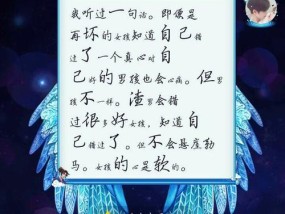 我听过一句话。即便是
再坏的女孩知道自己错
过了一个真心对自
己好的男孩也会心痛。但男
孩不一样。渣男会错
过很多好女孩，知道自
己错过了。但不会悬崖勒
马。女孩的心是软的。